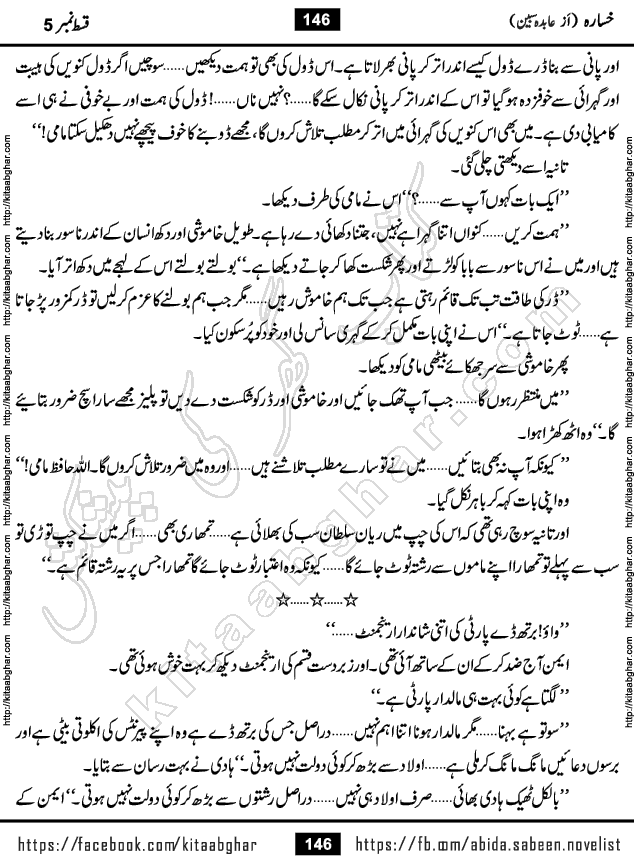 خسارہ (اَز عابدہ سبین)
146
قسط نمبر 5
اور پانی سے بنا ڈرے ڈول کیسے اندر اتر کر پانی بھر لاتا ہے۔ اس ڈول کی بھی تو ہمت دیکھیں......سوچیں اگر ڈول کنویں کی ہیبت
اور گہرائی سے خوفزدہ ہو گیا تو اس کے اندر اتر کر پانی نکال سکے گا......؟ نہیں ناں! ڈول کی ہمت اور بے خوفی نے ہی اسے
کامیابی دی ہے۔ میں بھی اس کنویں کی گہرائی میں اتر کر مطلب تلاش کروں گا، مجھے ڈوبنے کا خوف پیچھے نہیں دھکیل سکتا مامی!‘‘
تانیہ اسے دیکھتی چلی گئی۔
’’ایک بات کہوں آپ سے......؟‘‘ اس نے مامی کی طرف دیکھا۔
’’ہمت کریں......کنواں اتنا گہرا ہے نہیں، جتنا دکھائی دے رہا ہے۔ طویل خاموشی اور دکھ انسان کے اندر ناسور بنا دیتے
ہیں اور میں نے اس ناسور سے بابا کو لڑتے اور پھر شکست کھا کر جاتے دیکھا ہے۔‘‘ بولتے بولتے اس کے لہجے میں دکھ اتر آیا۔
’’ڈر کی طاقت تب تک قائم رہتی ہے جب تک ہم خاموش رہیں......مگر جب ہم بولنے کا عزم کر لیں تو ڈر کمزور پڑ جاتا
ہے......ٹوٹ جاتا ہے۔‘‘ اس نے اپنی بات مکمل کر کے گہری سانس لی اور خود کو پُر سکون کیا۔
پھر خاموشی سے سر جھکائے بیٹھی مامی کو دیکھا۔
’’میں منتظر رہوں گا......جب آپ تھک جائیں اور خاموشی اور ڈر کو شکست دے دیں تو پلیز مجھے سارا سچ ضرور بتائیے
گا۔‘‘ وہ اٹھ کھڑا ہوا۔
’’کیونکہ آپ نہ بھی بتائیں......میں نے تو سارے مطلب تلاشنے ہیں......اور وہ میں ضرور تلاش کروں گا۔ اللہ حافظ مامی!‘‘
وہ اپنی بات کہہ کر باہر نکل گیا۔
اور تانیہ سوچ رہی تھی کہ اس کی چپ میں ریان سلطان سب کی بھلائی ہے......تمھاری بھی......اگر میں نے چپ توڑی تو
سب سے پہلے تو تمھارا اپنے ماموں سے رشتہ ٹوٹ جائے گا......کیونکہ وہ اعتبار ٹوٹ جائے گا تمھارا جس پر یہ رشتہ قائم ہے۔‘‘
☆......☆......☆
’’واؤ! برتھ ڈے پارٹی کی اتنی شاندار ارینجمنٹ......‘‘
ایمن آج ضد کر کے ان کے ساتھ آئی تھی۔ اور زبردست قسم کی ارینجمنٹ دیکھ کر بہت خوش ہوئی تھی۔
’’لگتا ہے کوئی بہت ہی مالدار پارٹی ہے۔‘‘
’’سو تو ہے بہنا......مگر مالدار ہونا اتنا اہم نہیں......دراصل جس کی برتھ ڈے ہے وہ اپنے پیرنٹس کی اکلوتی بیٹی ہے اور
برسوں دعائیں مانگ مانگ کر ملی ہے......اولاد سے بڑھ کر کوئی دولت نہیں ہوتی۔‘‘ ہادی نے بہت رسان سے بتایا۔
’’بالکل ٹھیک ہادی بھائی......صرف اولاد ہی نہیں......دراصل رشتوں سے بڑھ کر کوئی دولت نہیں ہوتی۔‘‘ ایمن کے
کتاب گھر کی پیشکش
kitaabghar.com
http://kitaabghar.com http://kitaabghar.com http://kitaabghar.com http://kitaabghar.com http://kitaabghar.com http://kitaabghar.com
http://kitaabghar.com http://kitaabghar.com http://kitaabghar.com http://kitaabghar.com http://kitaabghar.com http://kitaabghar.com
https://facebook.com/kitaabghar
146
https://fb.com/abida.sabeen.novelist